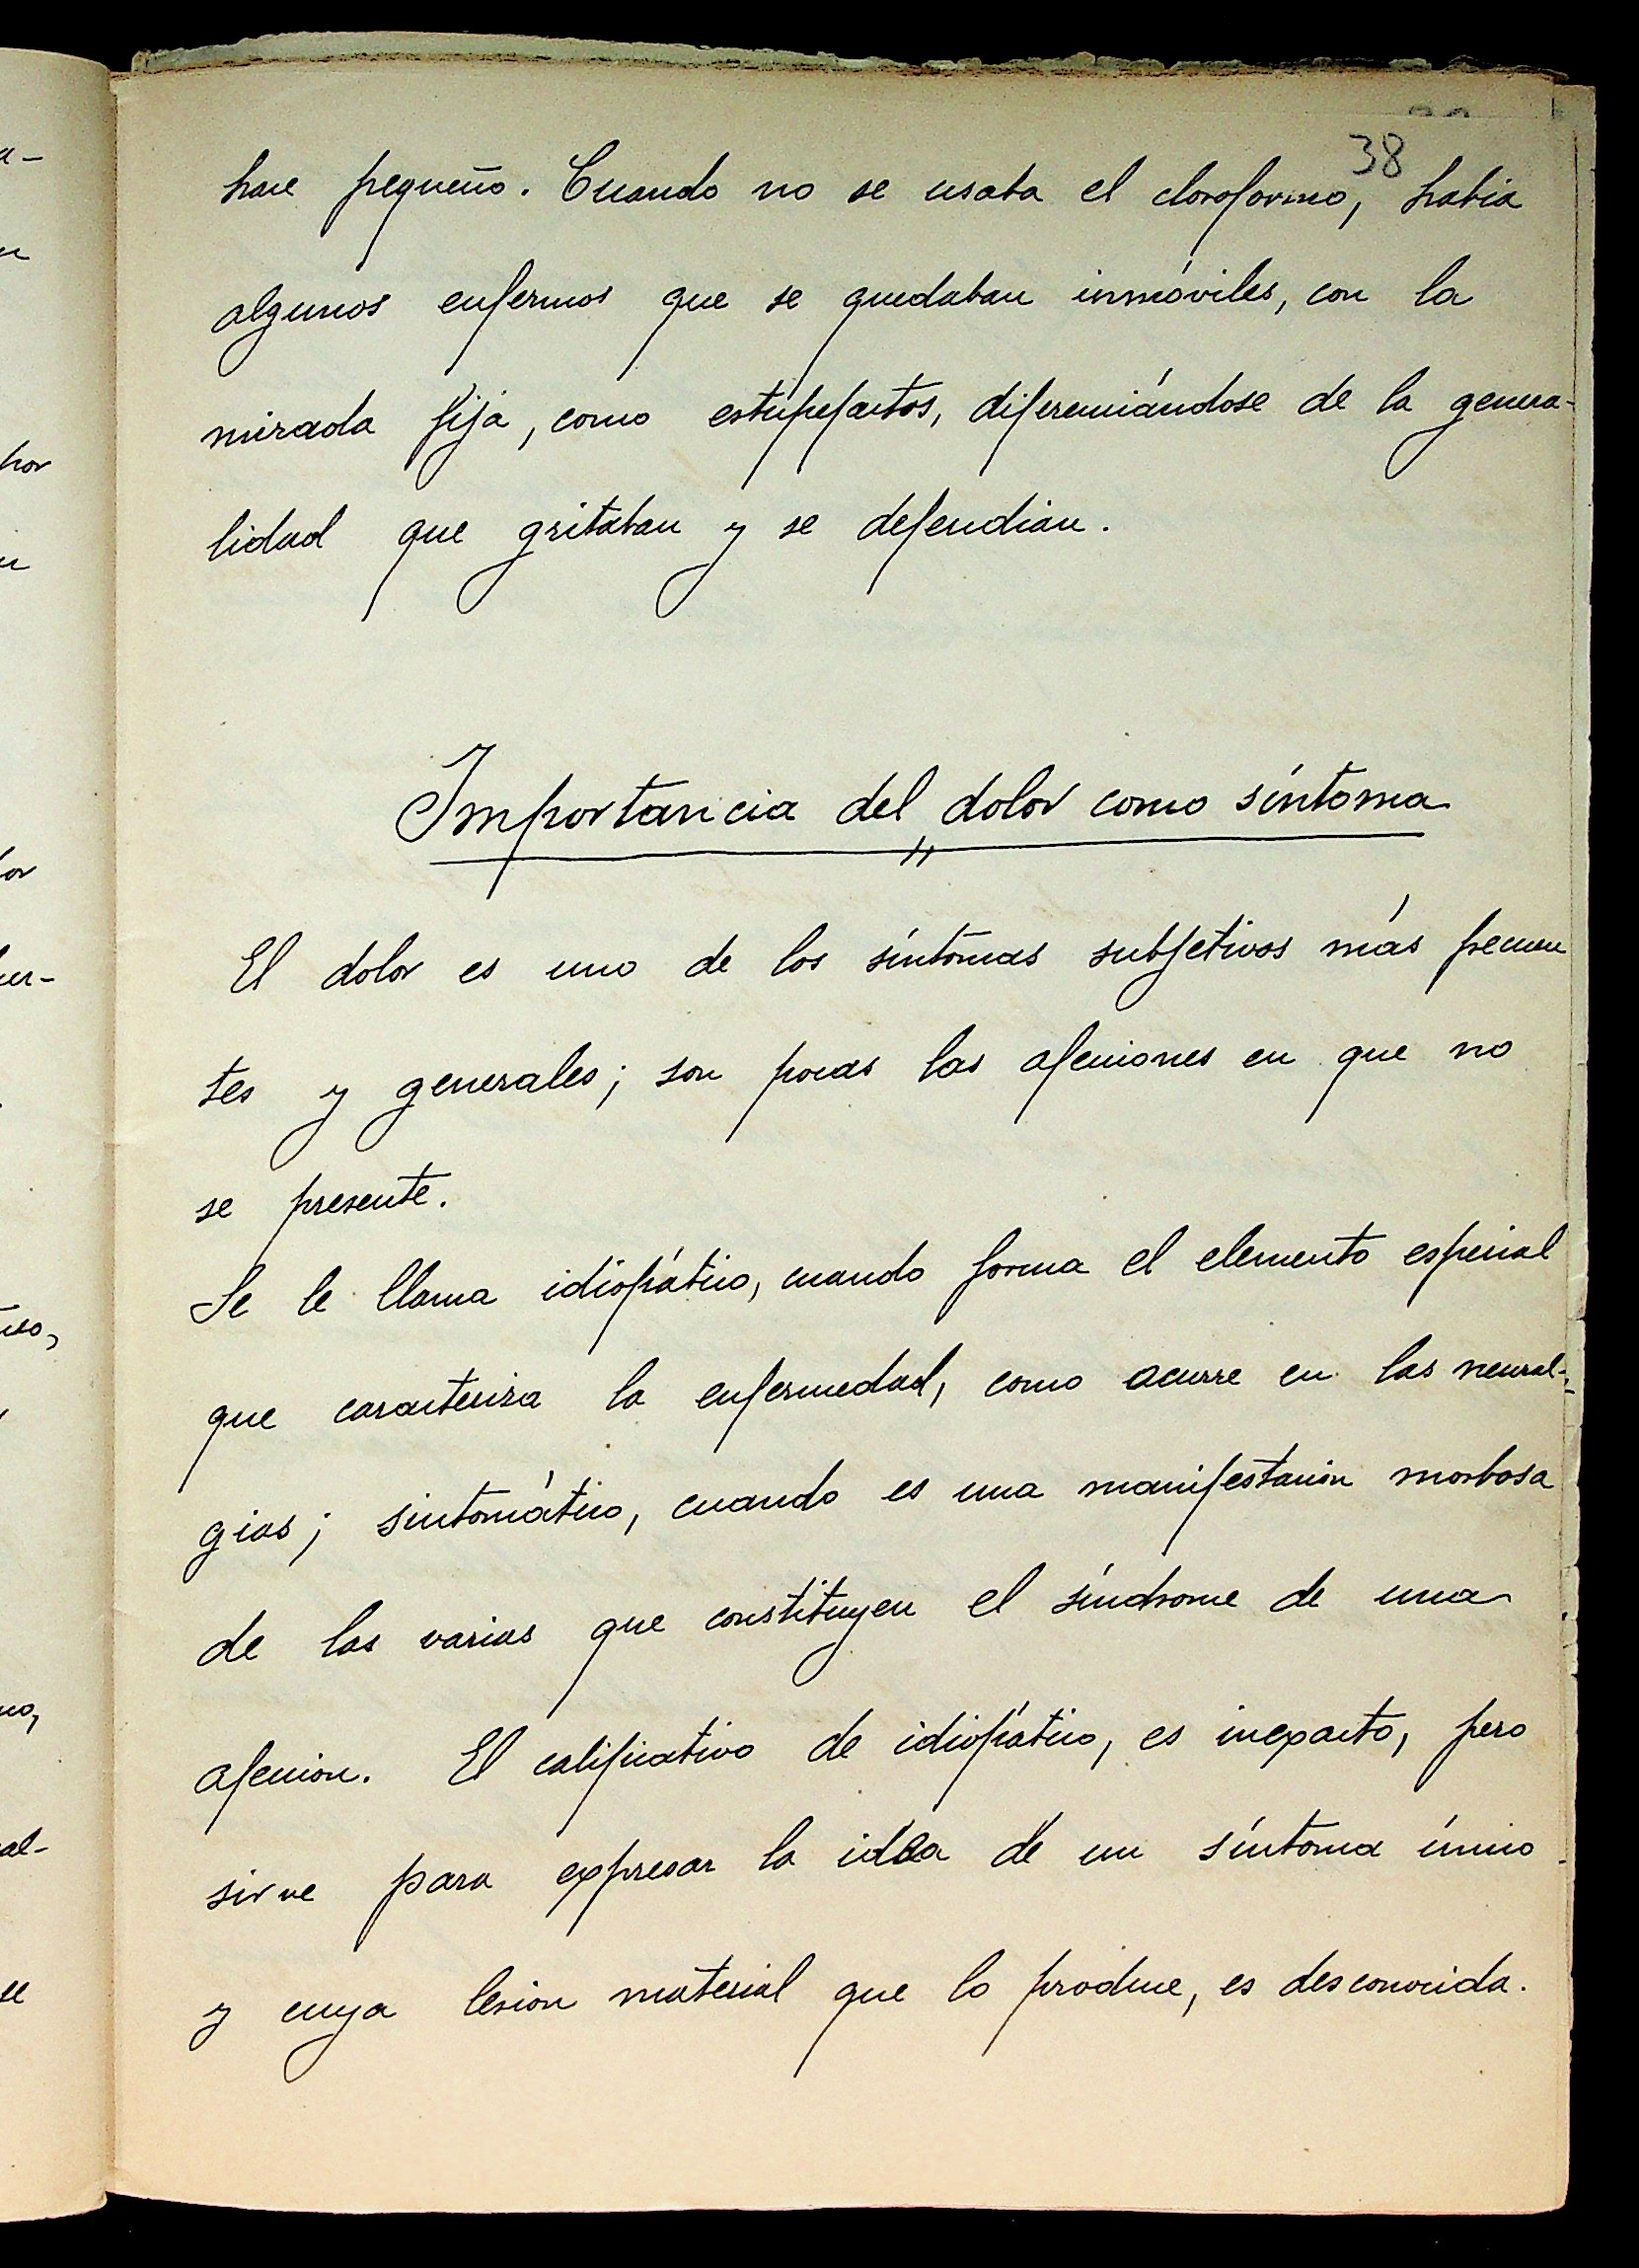 38
hace pequeño. Cuando no se usaba el cloroformo, habia
algunos enfermos que se quedaban inmóviles, con la
mirada fija, como estupefactos, diferenciándose de la genera-
lidad que gritaban y se defendian.
Importancia del dolor como síntoma
El dolor es uno de los síntomas subjetivos más frecuen
tes y generales; son pocas las afecciones en que no
se presente.
Se le llama idiopático, cuando forma el elemento especial
que caracteriza la enfermedad, como acurre en las neural-
gias; sintomático, cuando es una manifestación morbosa
de las varias que constituyen el síndrome de una
afeccion. El calificativo de idiopático, es inexacto, pero
sirve para expresar la idea de un síntoma único
y cuya lesion material que lo produce, es desconocida.
a-
n
por
n
or
er-
al-
se